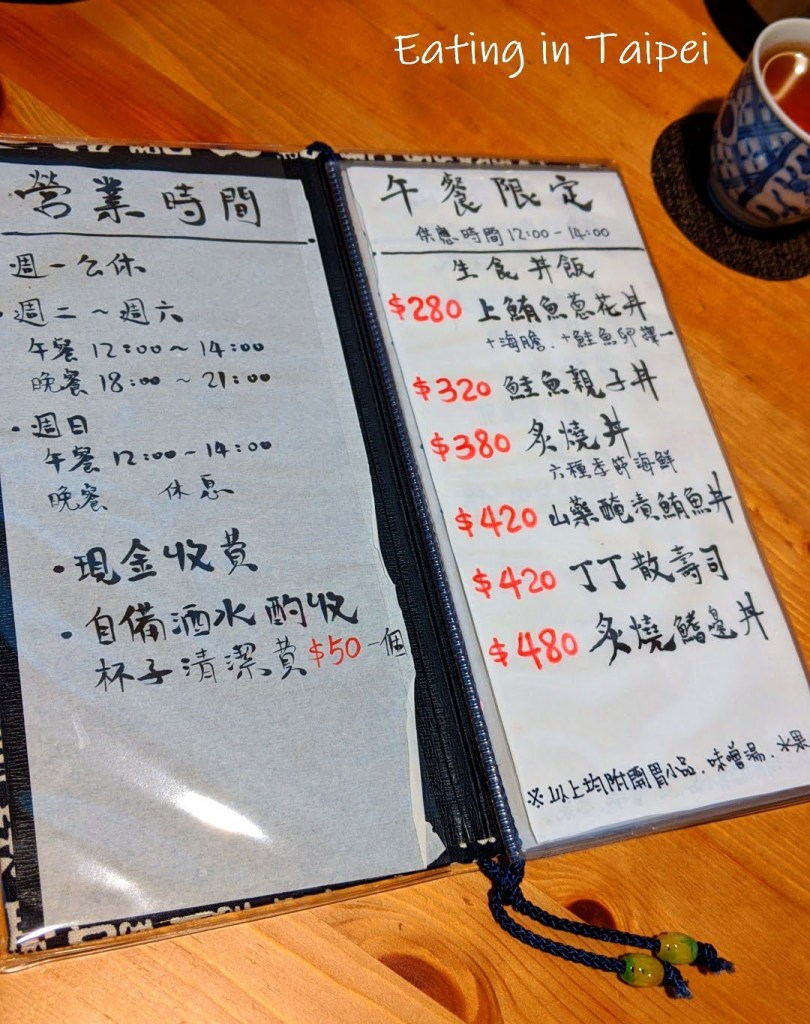 Eating in Taipei
營業時間
週一公休
・週二～週六
午餐 12:00～14:00
晚餐 18:00～21:00
・週日
午餐 12:00～14:00
晚餐 休息
・現金收費
・自備酒水酌收
杯子清潔費$50一個
午餐限定
供應時間12:00-14:00
生食丼飯
$280 上鮪魚蔥花丼
+海膽、+鮭魚卵擇一
$320 鮭魚親子丼
$380 炙燒丼
六種季節海鮮
$420 山藥醃漬鮪魚丼
$420 丁丁散壽司
$480 炙燒鰭邊丼
※以上均附開胃小品、味噌湯、水果